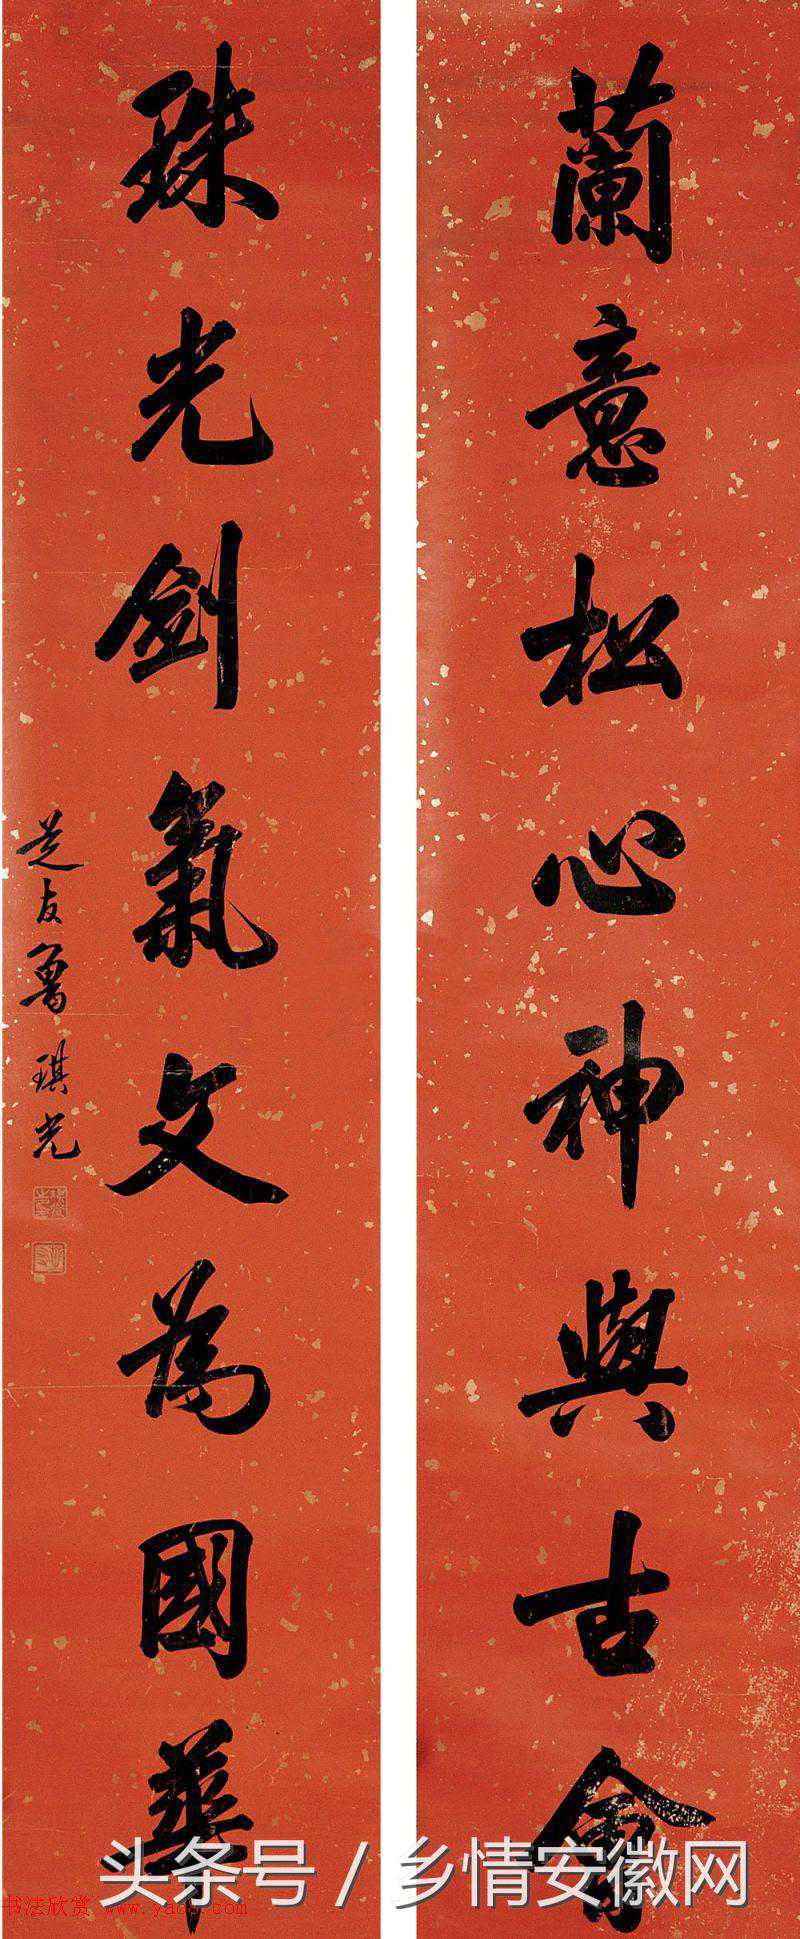 蘭意松心神與古會
珠光劍氣文為國華
芝友魯琪光
头条号 / 乡情安徽网
书法欣赏 www.yac8.com